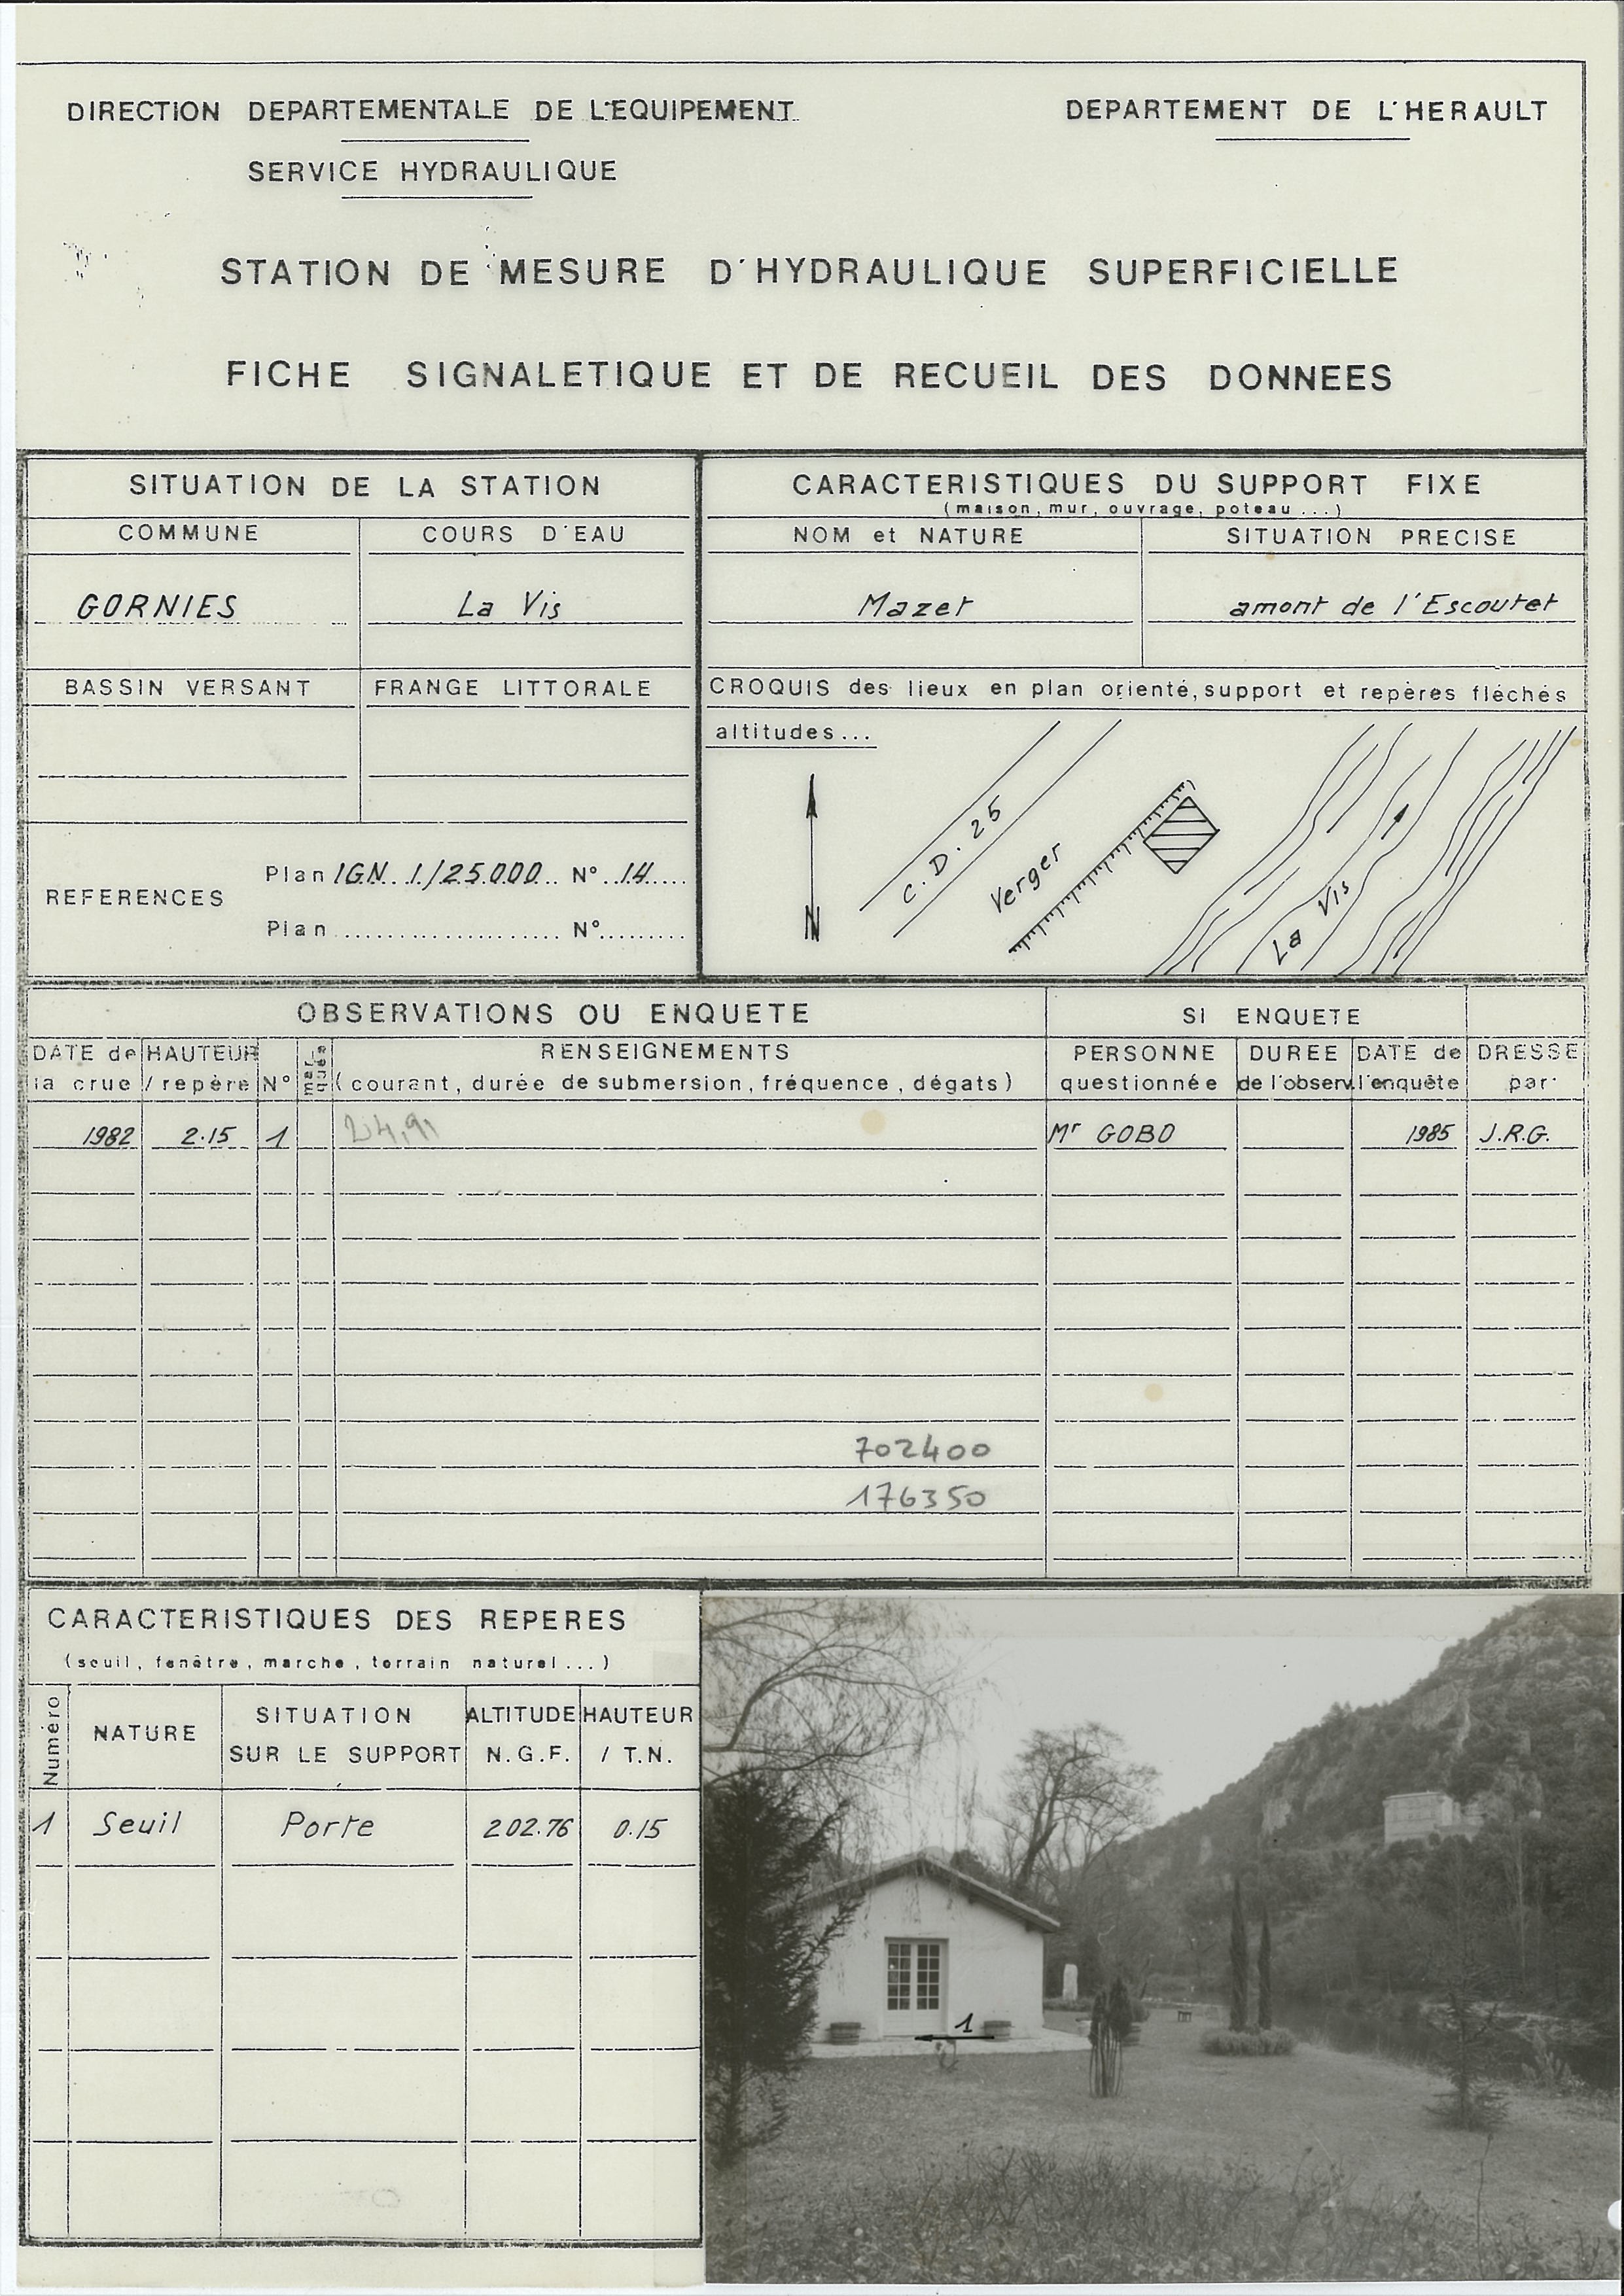 DIRECTION DEPARTEMENTALE DE L'EQUIPEMENT
DEPARTEMENT DE L'HERAULT
SERVICE HYDRAULIQUE
STATION DE MESURE D'HYDRAULIQUE SUPERFICIELLE
FICHE SIGNALETIQUE ET DE RECUEIL DES DONNEES
SITUATION DE LA STATION
COMMUNE
COURS D'EAU
GORNIES
La Vis
BASSIN VERSANT
FRANGE LITTORALE
REFERENCES
Plan IGN 1/25.000 N° 14
Plan .................... N°.........
CARACTERISTIQUES DU SUPPORT FIXE
(maison, mur, ouvrage, poteau...)
NOM et NATURE
SITUATION PRECISE
Mazet
amont de l'Escoutet
CROQUIS des lieux en plan orienté, support et repères fléchés
altitudes...
N
C.D. 25
Verger
La Vis
OBSERVATIONS OU ENQUETE
SI ENQUETE
DATE de la crue
HAUTEUR / repère
N°
RENSEIGNEMENTS
(courant, durée de submersion, fréquence, dégats)
PERSONNE questionnée
DUREE de l'observ.
DATE de l'enquête
DRESSE par
1982
2.15
1
Mr GOBO
1985
J.R.G.
702400
176350
CARACTERISTIQUES DES REPERES
(seuil, fenêtre, marche, terrain naturel...)
Numéro
NATURE
SITUATION SUR LE SUPPORT
ALTITUDE N.G.F.
HAUTEUR / T.N.
1
Seuil
Porte
202.76
0.15
1